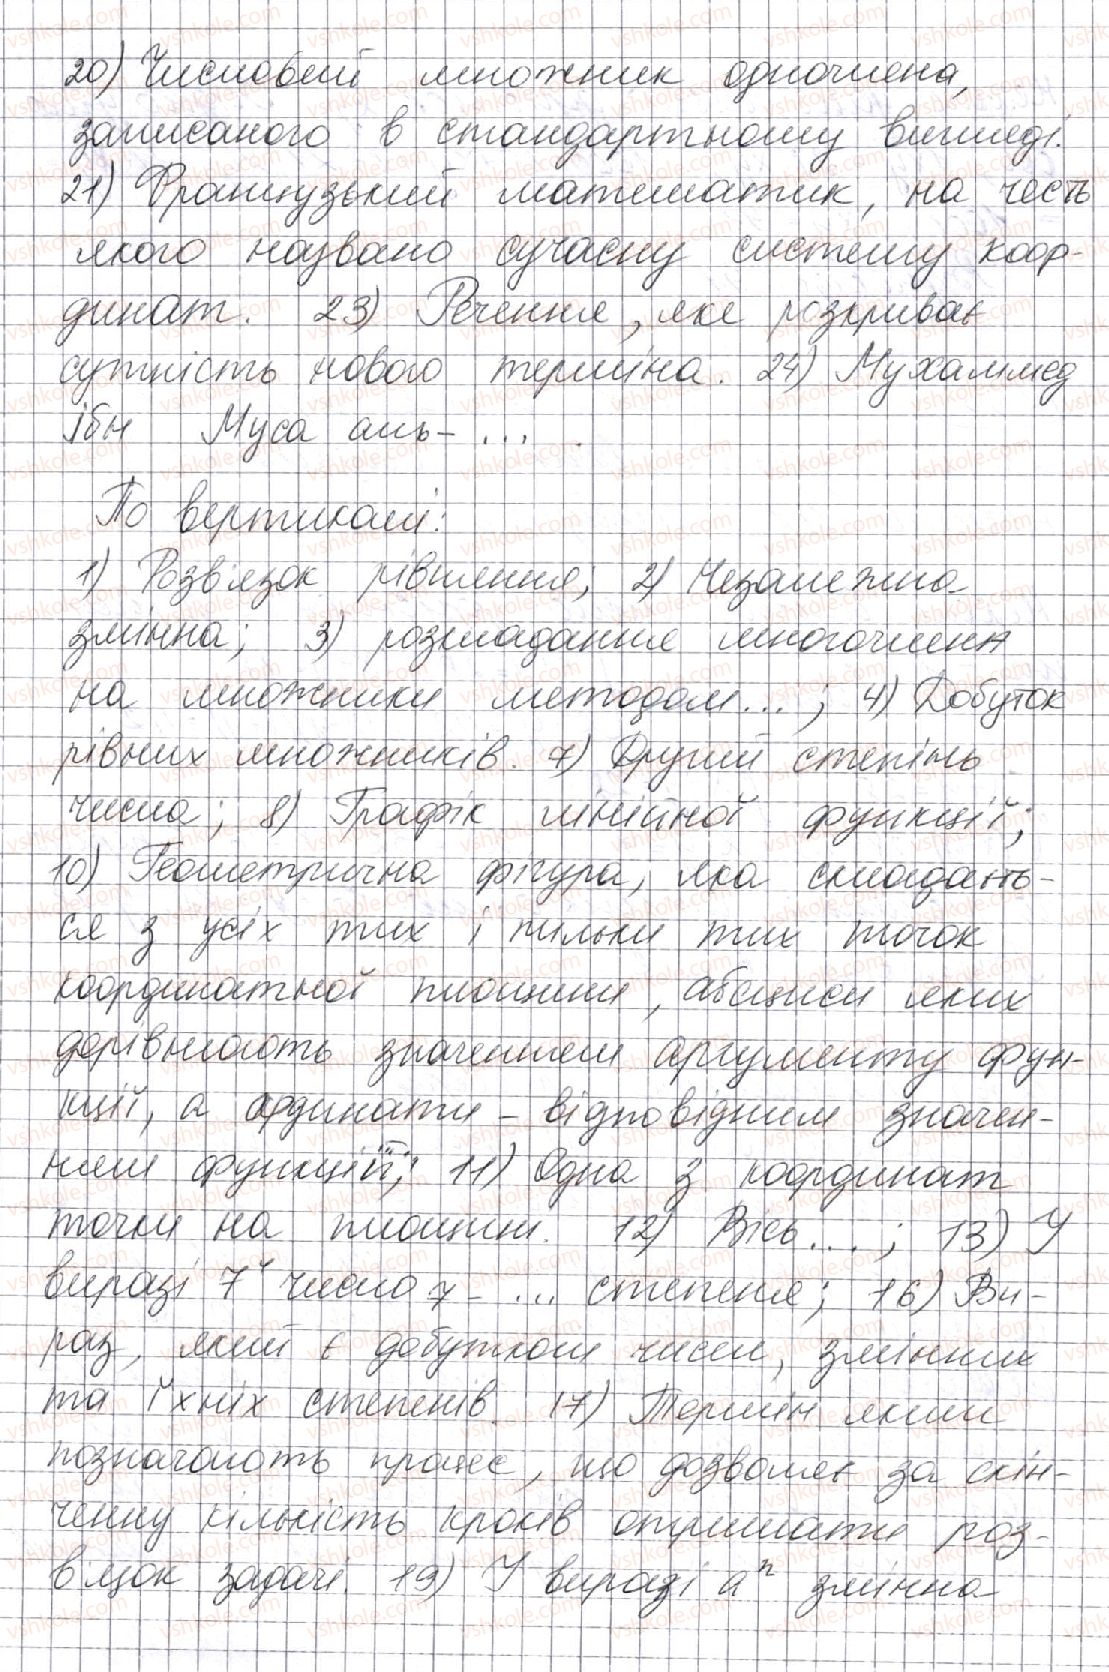 20) Числовий множник одночлена,
записаного в стандартному вигляді.
21) Французький математик, на честь
якого названо сучасну систему коор-
динат. 23) Речення, яке розкриває
сутність нового терміна. 24) Мухаммед
ібн Муса аль- ...
По вертикалі:
1) Розв'язок рівняння; 2) Незалежна
змінна; 3) розкладання многочлена
на множники методом...; 4) Добуток
рівних множників. 7) Другий степінь
числа; 8) Графік лінійної функції;
10) Геометрична фігура, яка складаєть-
ся з усіх тих і тільки тих точок
координатної площини, абсциси яких
дорівнюють значенням аргументу фун-
кції, а ординати - відповідним значен-
ням функції; 11) Одна з координат
точки на площині. 12) Вісь...; 13) У
виразі 7⁴ число 7 - ... степеня; 16) Ви-
раз, який є добутком чисел, змінних
та їхніх степенів. 17) Термін яким
позначають процес, що дозволяє за скін-
ченну кількість кроків отримати роз-
в'язок задачі. 19) У виразі aⁿ змінна